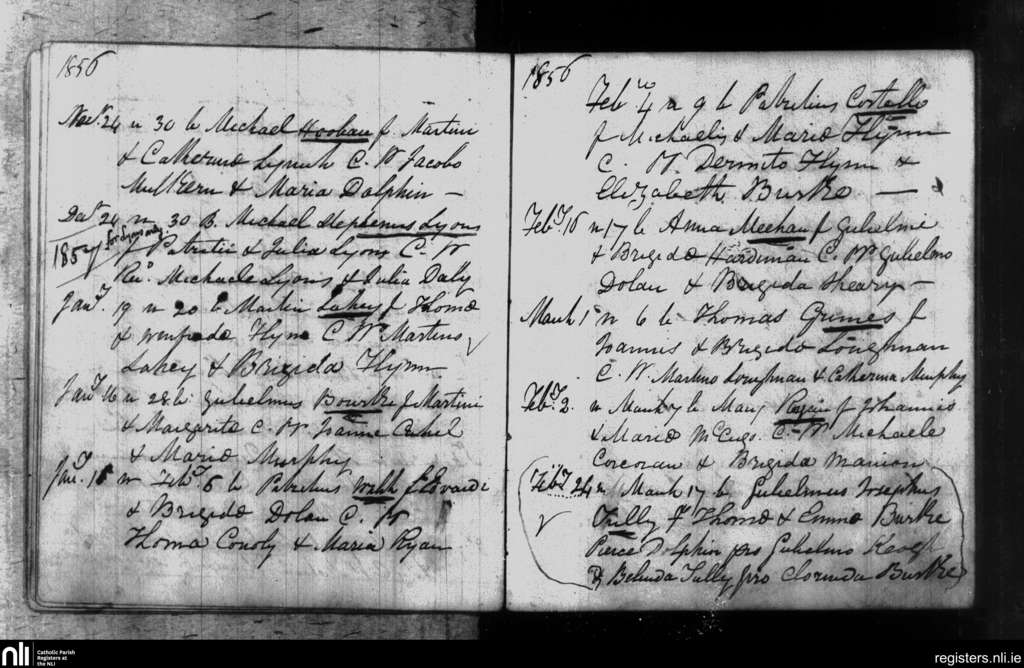 1856
Nov. 24 n 30 b Michael Hooban f Martini
& Catherine Lynch C. W Jacobo
Mulkern & Maria Dolphin —
Dec. 24 n 30 B. Michael Stephenus Lyons
1857 for Lyons only f Patritii & Julia Lyons C. W
Rev. Michaele Lyons & Julia Daly
Jany. 19 n 20 b Martin Lahey f Thoma
& Flynn C W Martinus
Lahey & Brigida Flynn
Jany 16 n 28 b. Gulielmus Bourke f Martini
& Margarita C. W Joanne
& Maria Murphy
Jan. 15 n Feb. 6 b Patritius Walsh f Edvardi
& Brigida Dolan C. W
Thoma Conoly & Maria Ryan
1856
Feb 4 n 9 b Patritius Costello
f Michaelis & Maria Flynn
C. W. Dermito Flynn &
Elizabeth Burke —
Feby. 16 n 17 b Anna Meehan f Gulielmi
& Brigida Hardiman C. W Gulielmo
Dolan & Brigida Sheary —
March 1 n 6 b Thomas Grimes f
Joannis & Brigida Loughnan
C. W. Martino Loughnan & Catherina Murphy
Feby. 2. n March 7 b Mary f Johannis
& Maria C. W Michaele
Corcoran & Brigida Manion
Feby 24 n March 17 b Gulielmus Josephus
Tully F Thoma & Emma Burke
Pierce Dolphin pro Gulielmo Keogh
& Belinda Tully pro Clorinda Burke
nli
Catholic Parish
Registers at
the NLI
registers.nli.ie